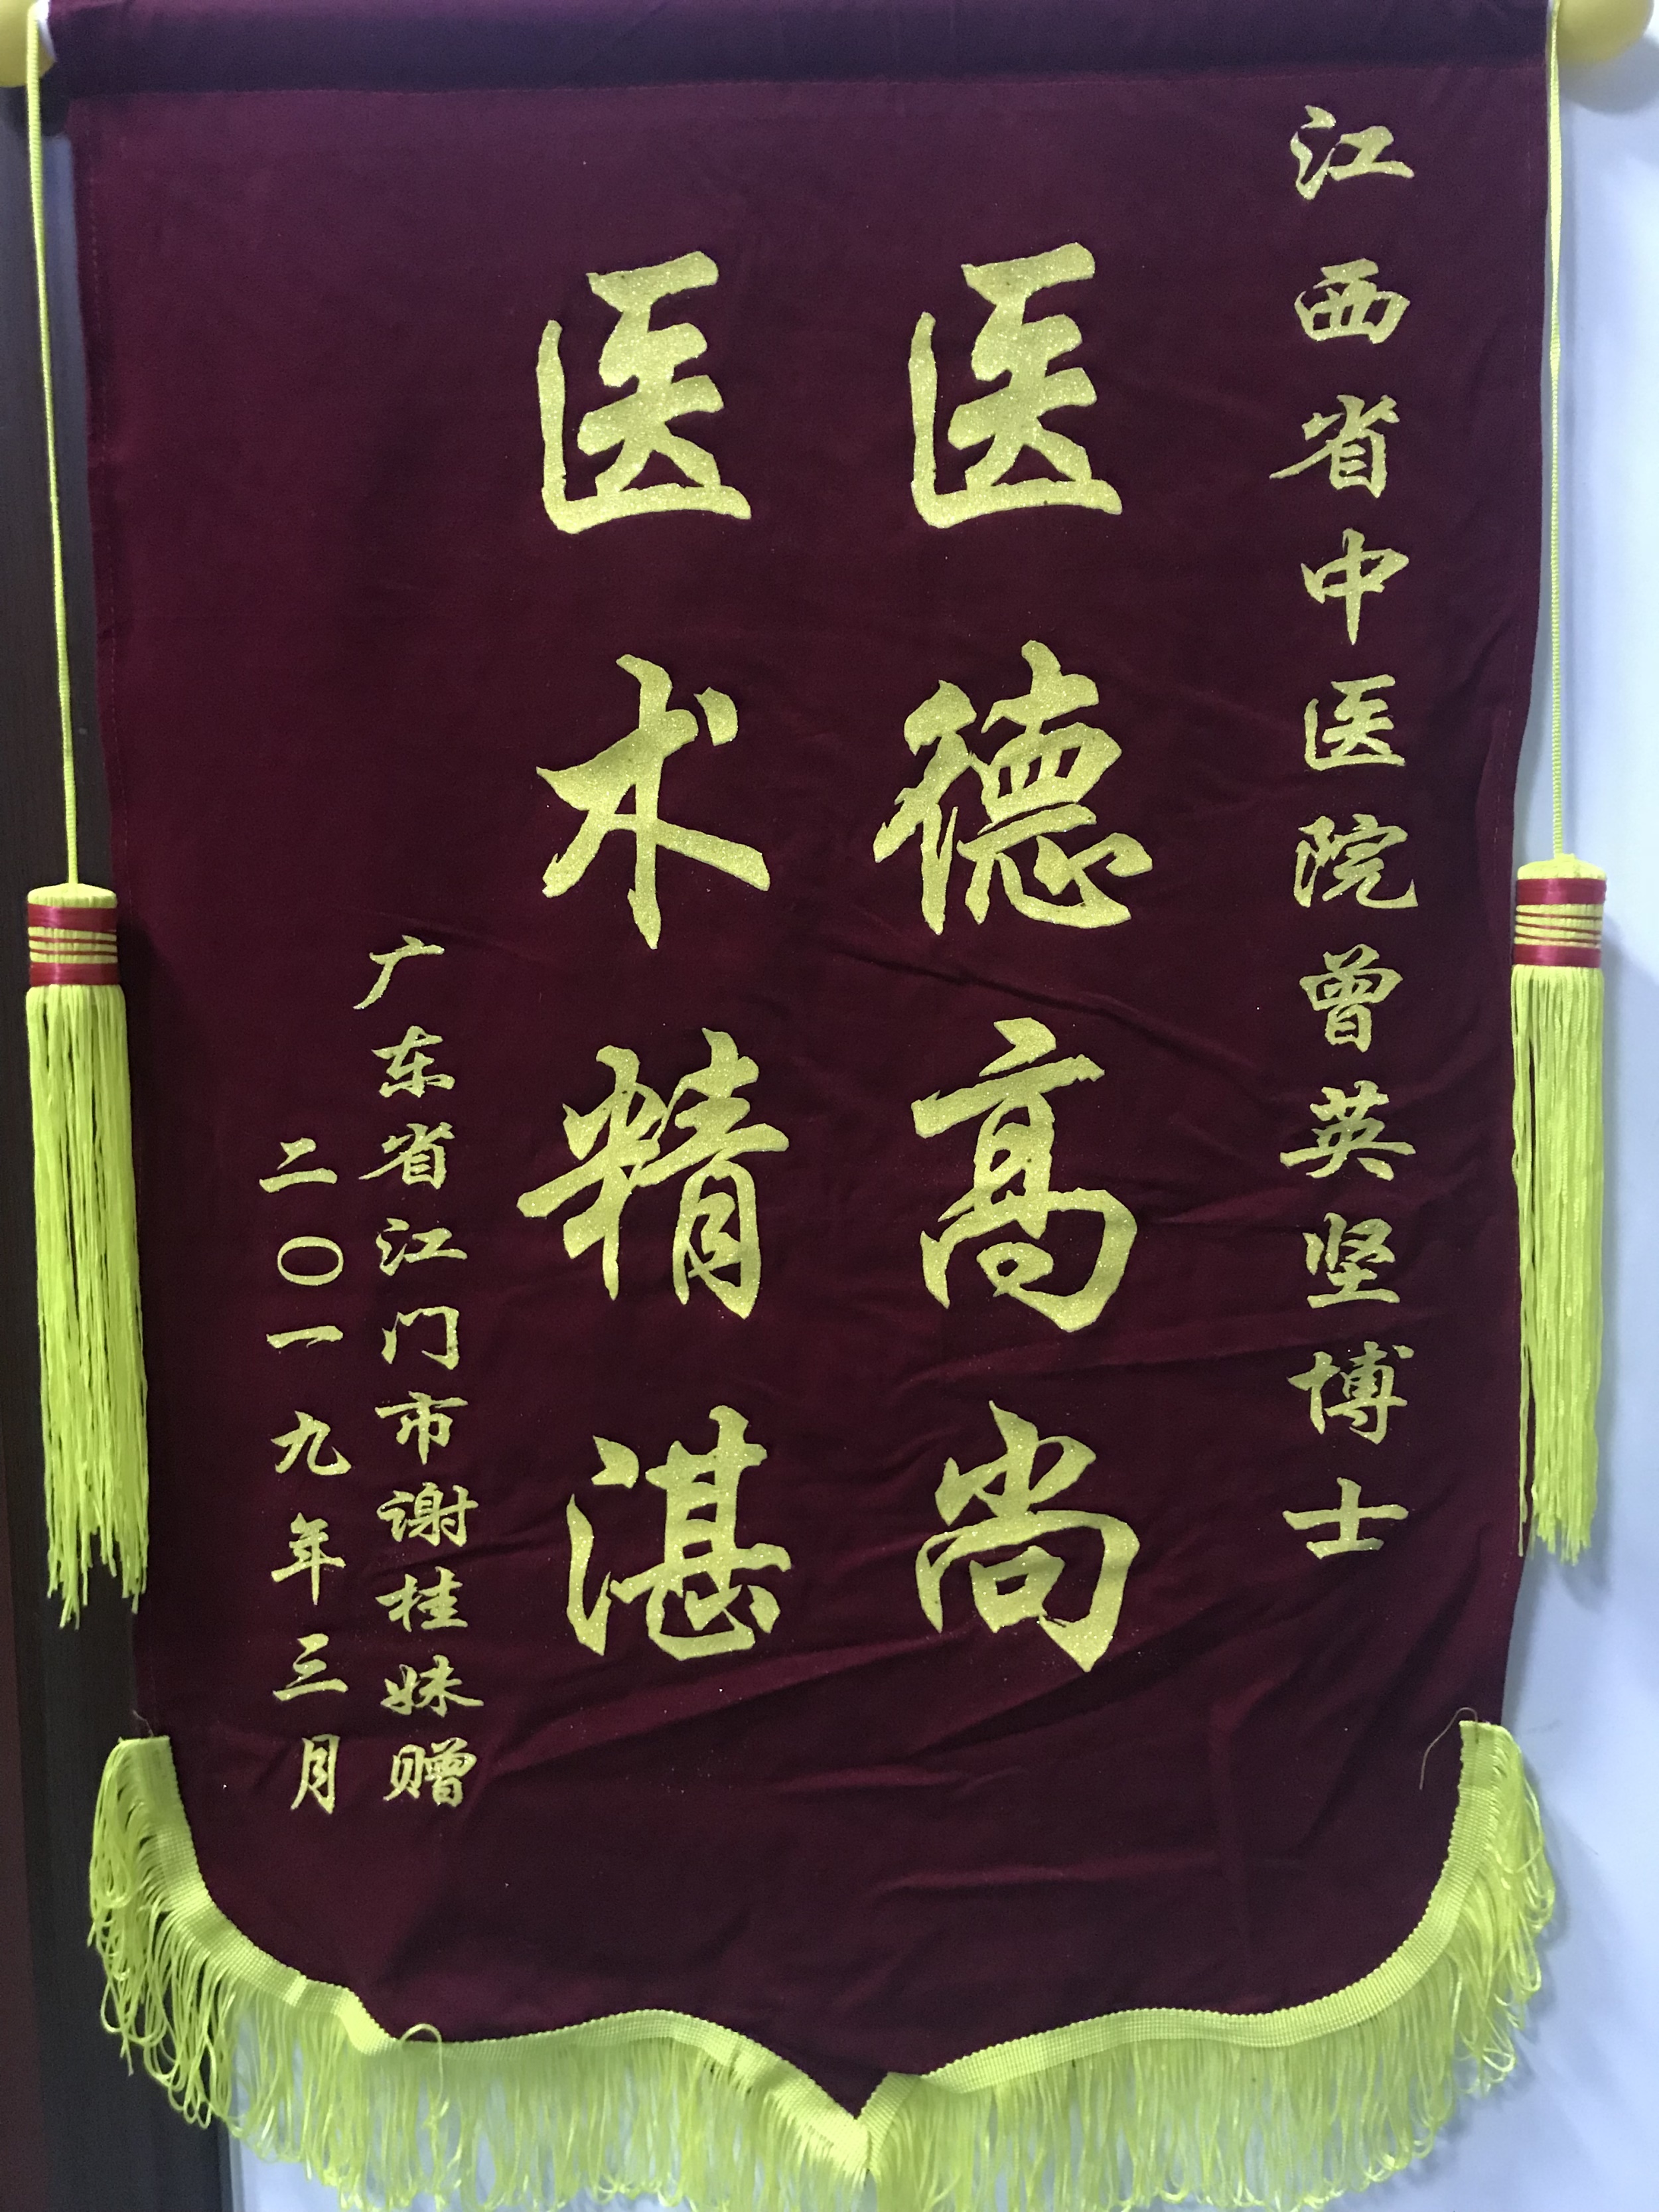 江西省中医院曾英坚博士
医德高尚
医术精湛
广东省江门市谢桂妹赠
二〇一九年三月